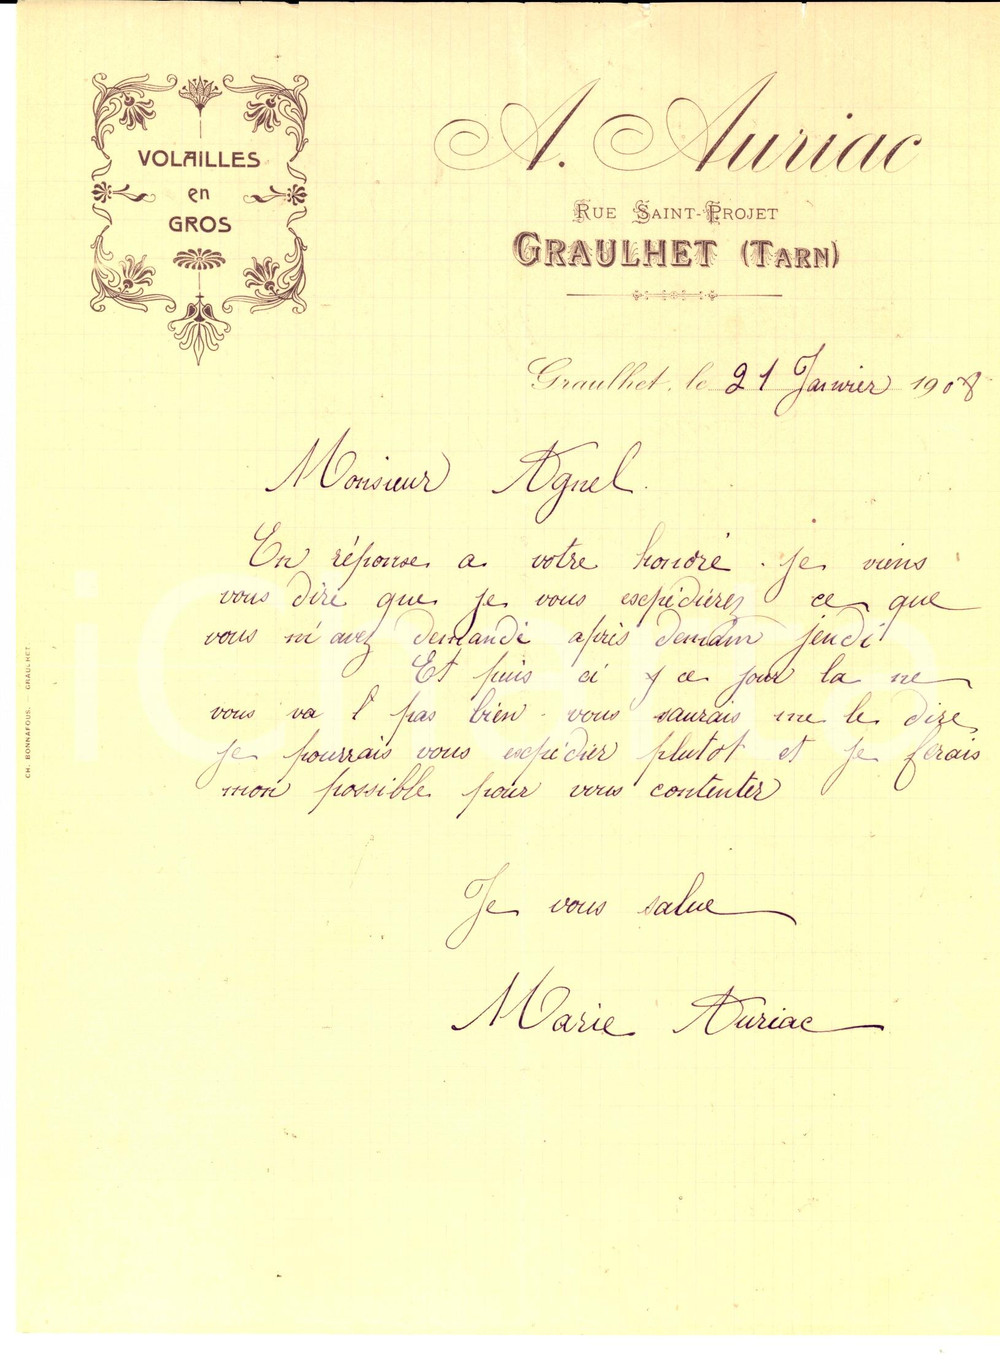 VOLAILLES
en
GROS
A. Auriac
RUE SAINT-PROJET
GRAULHET (TARN)
Graulhet, le 21 Janvier 1908
Monsieur Agnel.
En réponse a votre honoré. je viens
vous dire que je vous expédierez ce que
vous m'avez demandé après demain jeudi
Et puis ci y ce jour la ne
vous va l pas bien. vous saurais me le dire
je pourrais vous expédier plutot et je ferais
mon possible pour vous contenter
Je vous salue
Marie Auriac
CH. BONNAFOUS. GRAULHET